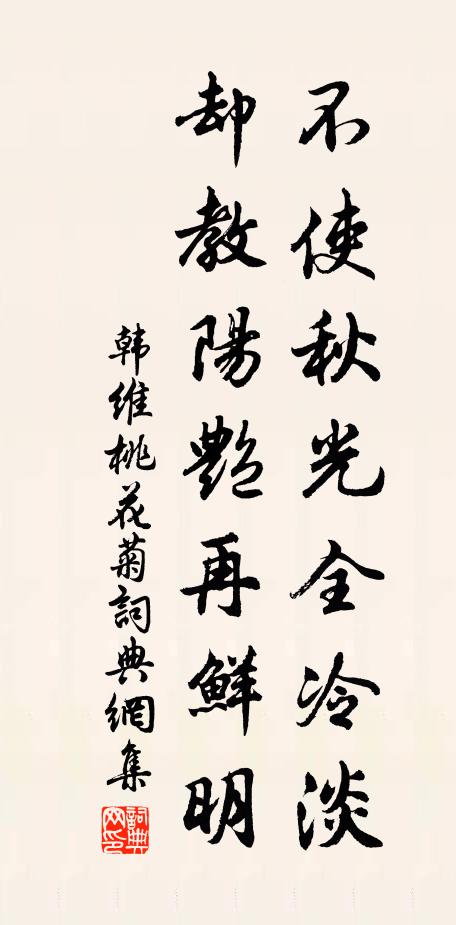 不使秋光全冷淡
却教陽艷再鮮明
韩维桃花菊詞典網集
詞典網印